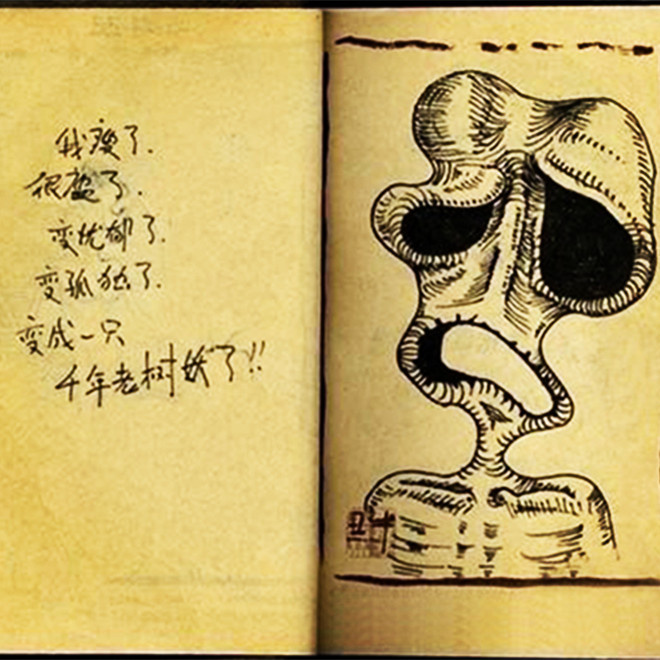 我瘦了.
很瘦了.
变忧郁了.
变孤独了.
变成一只
千年老树妖了!!